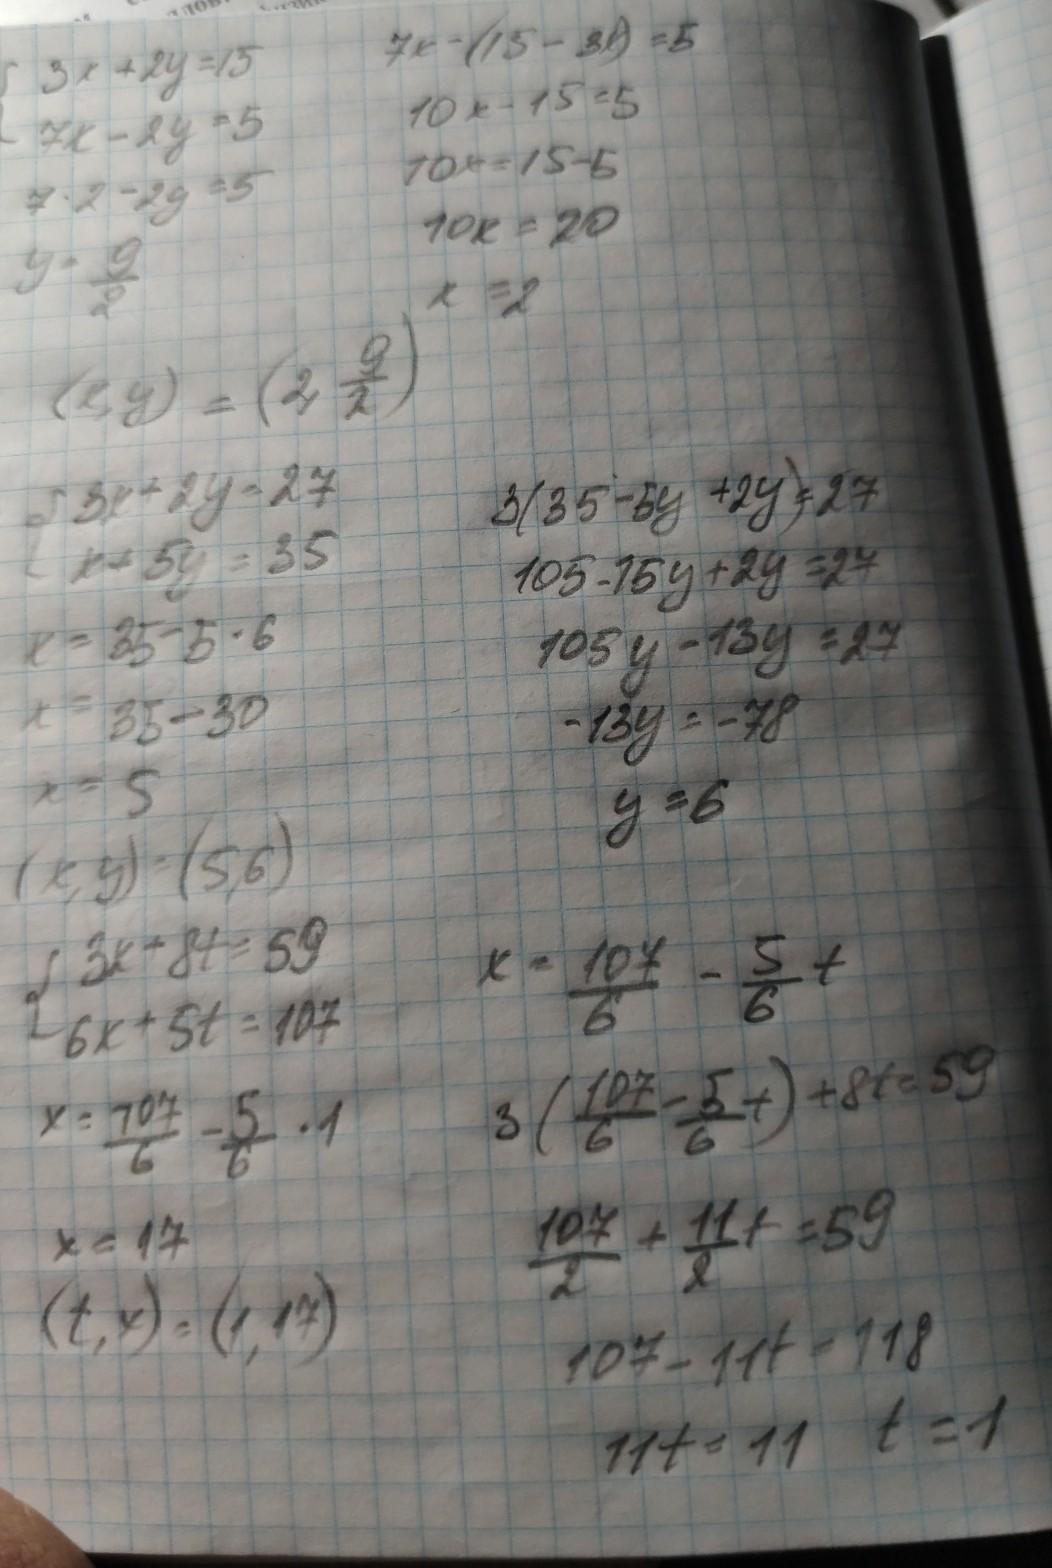 3x+2y=15
7x-2y=5
7·2-2y=5
y=9/2
(x,y)=(2,9/2)
7x-(15-3x)=5
10x-15=5
10x=15+5
10x=20
x=2
3x+2y=27
x+5y=35
x=35-5·6
x=35-30
x=5
(x,y)=(5,6)
3(35-5y+2y)=27
105-15y+2y=27
105y-13y=27
-13y=-78
y=6
3x+8t=59
6x+5t=107
x=107/6-5/6·1
x=17
(t,x)=(1,17)
x=107/6-5/6t
3(107/6-5/6t)+8t=59
107/2+11/2t=59
107-11t=118
11t=11 t=1